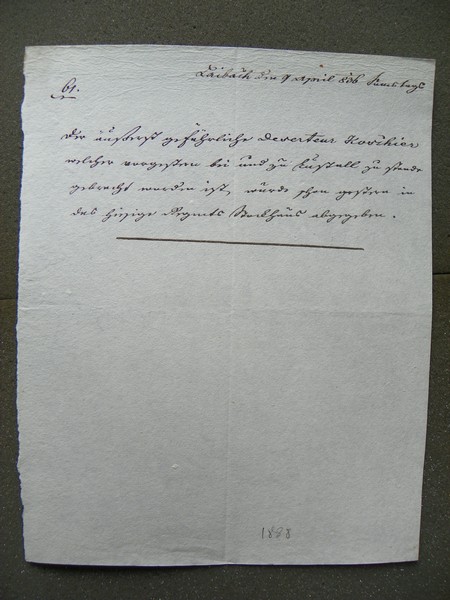 Laibach den 9 April 836
61.
Der äußerst gefährliche Deserteur Koschier
welcher vorgestern bei und zu zu stande
gebracht worden ist, wurde schon gestern in
das hiesige Regmts Stockhaus abgegeben.
1888